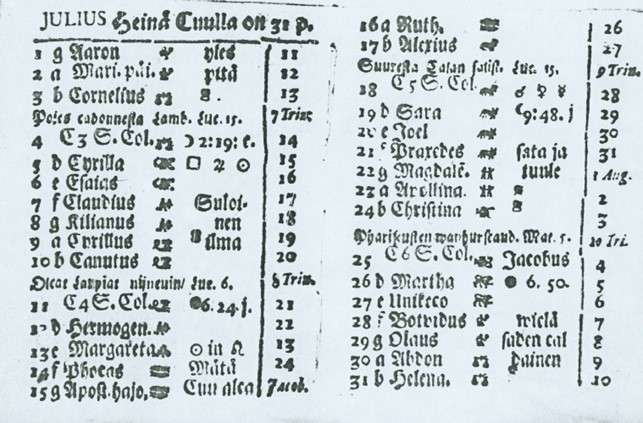 JULIUS Heinä Cuulla on 31 p.
1 g Aaron yles 11
2 a Mari. päi. pitä 12
3 b Cornelius 13
Poies cadonnesta Lamb. Luc. 15. 7 Trin.
4 C 3 S. Col. ☽ 2:19: e. 14
5 d Cyrilla □ ♃ ☉ 15
6 e Esaias 16
7 f Claudius Suloi- 17
8 g Kilianus nen 18
9 a Cyrillus ilma 19
10 b Canutus 20
Oicat Luc. 6. 8 Trin.
11 C 4 S. Col. ● 6. 24. j. 21
12 d Hermogen. 22
13 e Margareta ☉ in ♌ 13
14 f Phocas Mätä 24
15 g Apost. hajo. Cuu alca Jacob.
16 a Ruth. 26
17 b Alexius 27
Suuresta Luc. 15. 9 Trin.
18 C 5 S. Col. ♂ ☿ ☿ 28
19 d Sara 9:48. j 29
20 e Joel 30
21 f Praxedes sata ja 31
22 g Magdalē. tuule 1 Aug.
23 a Apollina. 2
24 b Christina 3
Mat. 5. 10 Tri.
25 C 6 S. Col. Jacobus 4
26 d Martha ● 6. 50. 5
27 e 6
28 f Botvidus wielä 7
29 g Olaus saden cal 8
30 a Abdon dainen 9
31 b Helena. 10